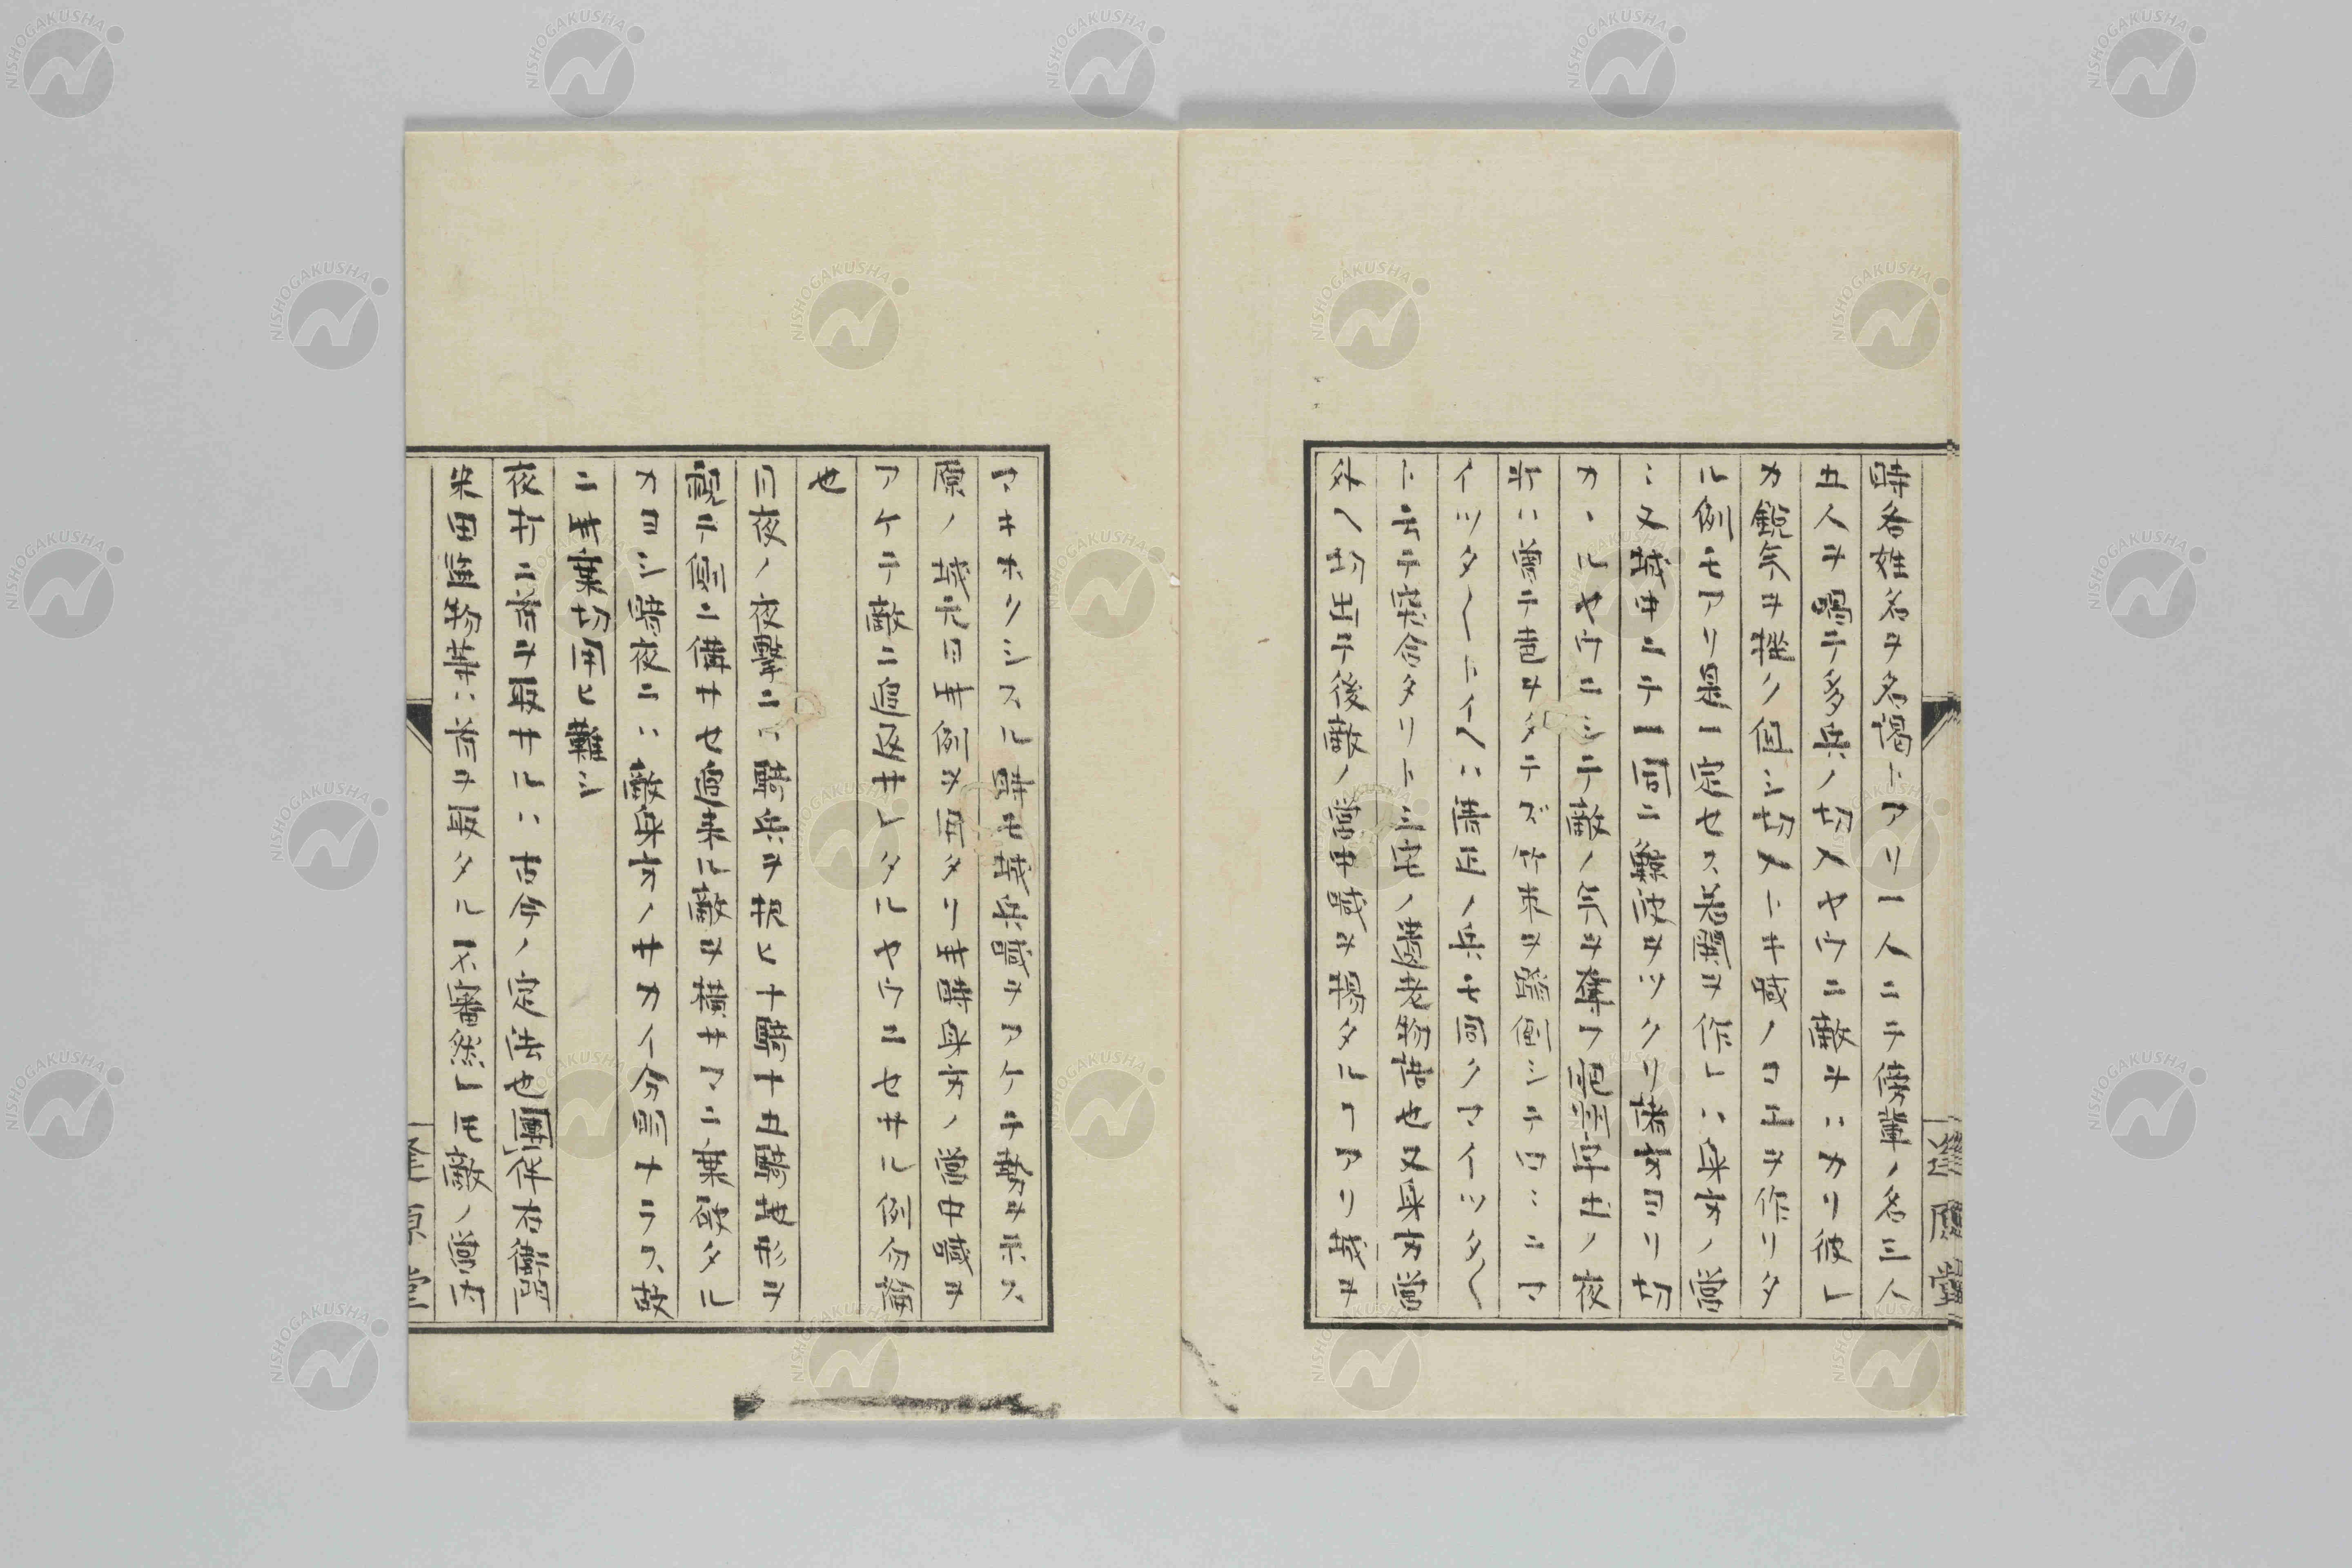 時各姓名ヲ名謁トアリ一人ニテ傍輩ノ名三人
五人ヲ唱テ多兵ノ切入ヤウニ敵ヲハカリ彼レ
カ鋭気ヲ挫ク但シ切入トキ鬨ノコエヲ作リタ
ル例モアリ是一定セス若鬨ヲ作レハ身方ノ営
ニ又城中ニテ一同ニ鯨波ヲツクリ番方ヨリ切
カヽルヤウニシテ敵ノ気ヲ奪フ兜首宰モノ夜
軍ハ曽テ音ヲタテズ竹束ヲ 倒シテワニニマ
イツタ〱トイヘハ昔正ノ兵モ同クマイツタ〱
ト云テ突合タリト 定ノ 物語也又身方営
外ヘ切出テ後敵ノ営中鬨ヲ揚タルコアリ城ヲ
マキホクシスル時モ城兵鬨ヲアケテ勢ヲ示ス
原ノ城元日ニ例ヲ再タリ其時身方ノ営中鬨ヲ
アケテ敵ニ追反サレタルヤウニセサル例分
也
月夜ノ夜撃ニハ騎兵ヲ抱ヒ十騎十五騎城形ヲ
観テ側ニ備サセ追来ル敵ヲ横サマニ乗破タル
カヨシ暗夜ニハ敵身方ノサカイ分明ナラス故
ニ其乗切用ヒ難シ
夜軍ニ首ヲ取サルハ古今ノ定法也團伴右衛門
米田監物等ハ首ヲ取タル不審然レ𪜈敵ノ営内